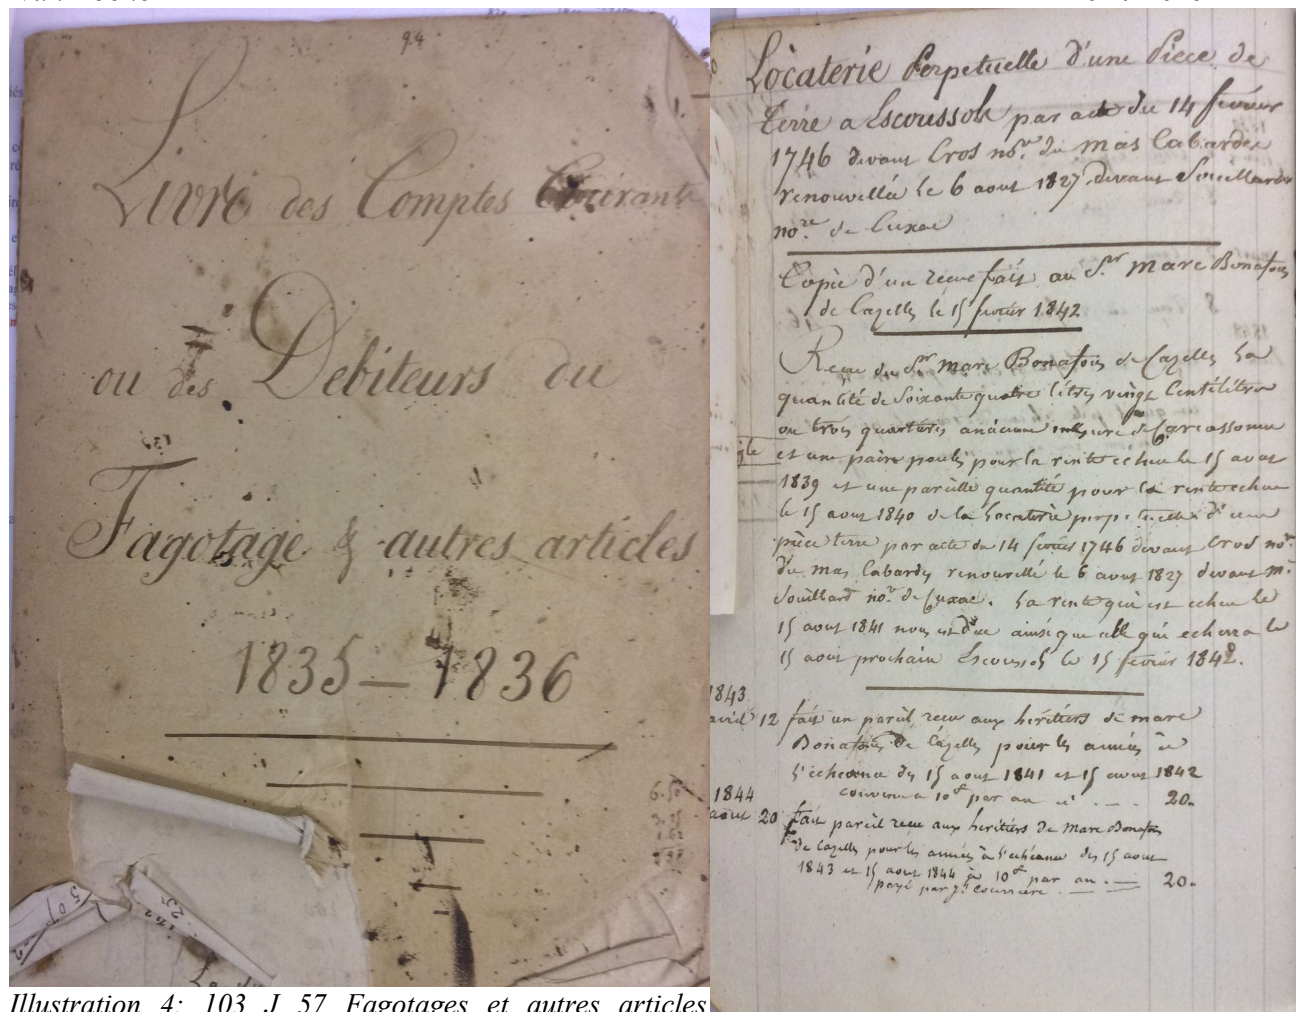 94
Livre des Comptes Courants
ou des Debiteurs du
Fagotage & autres articles
1835 — 1836
Locaterie Perpetuelle d'une Piece de
terre a Escoussols par acte du 14 fevrier
1746 devant Cros nore. du mas Cabardes
renouvellée le 6 aout 1827 devant
nore. de Cuxac
Copie d'un recu fait au Sr. Marc Bonafous
de Cazelles le 15 fevrier 1842
Recu du Sr. Marc Bonafous de Cazelles la
quantité de Soixante quatre litres vingt Centilitres
ou trois quartieres ancienne mesure de Carcassonne
et une paire poulets pour la rente echue le 15 aout
1839 et une pareille quantité pour la rente echue
le 15 aout 1840 de la Locaterie perpetuelle d'une
pièce terre par acte du 14 fevrier 1746 devant Cros nore.
du mas Cabardes renouvellé le 6 aout 1827 devant Me.
Souillard nore. de Cuxac. La rente qui est echue le
15 aout 1841 nous est due ainsi que celle qui echerra le
15 aout prochain Escoussols le 15 fevrier 1842.
1843
avril 12 fait un pareil recu aux héritiers de marc
Bonafous de Cazelles pour les années à
l'echeance des 15 aout 1841 et 15 aout 1842
convenu a 10f par an ci 20.
1844
aout 20 fait pareil recu aux heritiers de Marc Bonafous
de Cazelles pour les années à l'echéance des 15 aout
1843 et 15 aout 1844 à 10f par an 20.
payé par
Illustration 4: 103 J 57 Fagotages et autres articles